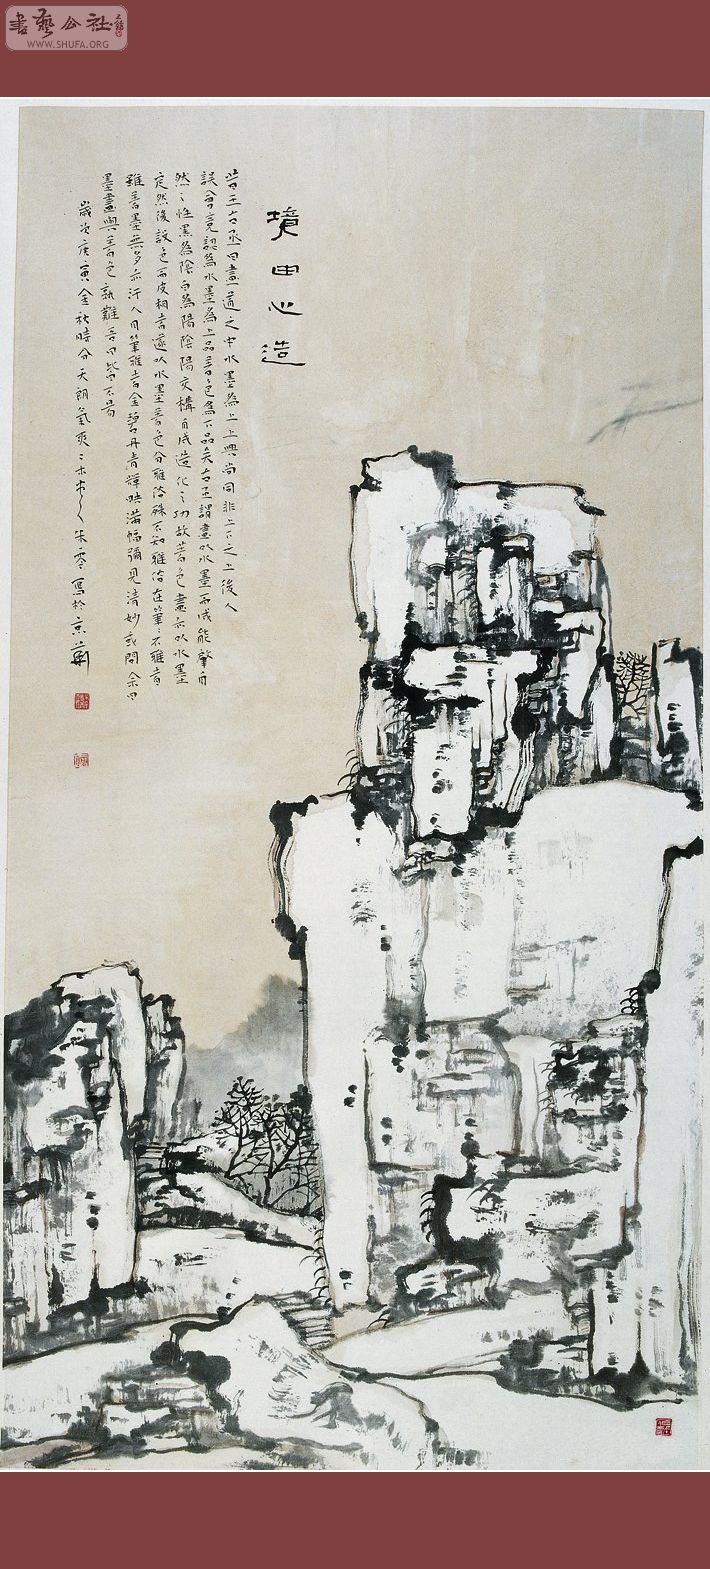 書藝公社
WWW.SHUFA.ORG
境由心造
昔王右丞曰畫道之中水墨為上上與尚同非上下之上後人
誤會竟認為水墨為上品著色為下品矣右丞謂畫以水墨而成能肇自
然之性黑為陰白為陽陰陽交構自成造化之功故著色畫亦以水墨
定然後設色而皮相者遂以水墨著色分雅俗殊不知雅俗在筆筆不雅者
雖著墨無多亦汙人目筆雅者金碧丹青輝映滿幅彌見清妙或問余曰
墨畫與著色孰難吾曰皆不易
歲次庚寅金秋時分天朗氣爽
朱零寫於京華